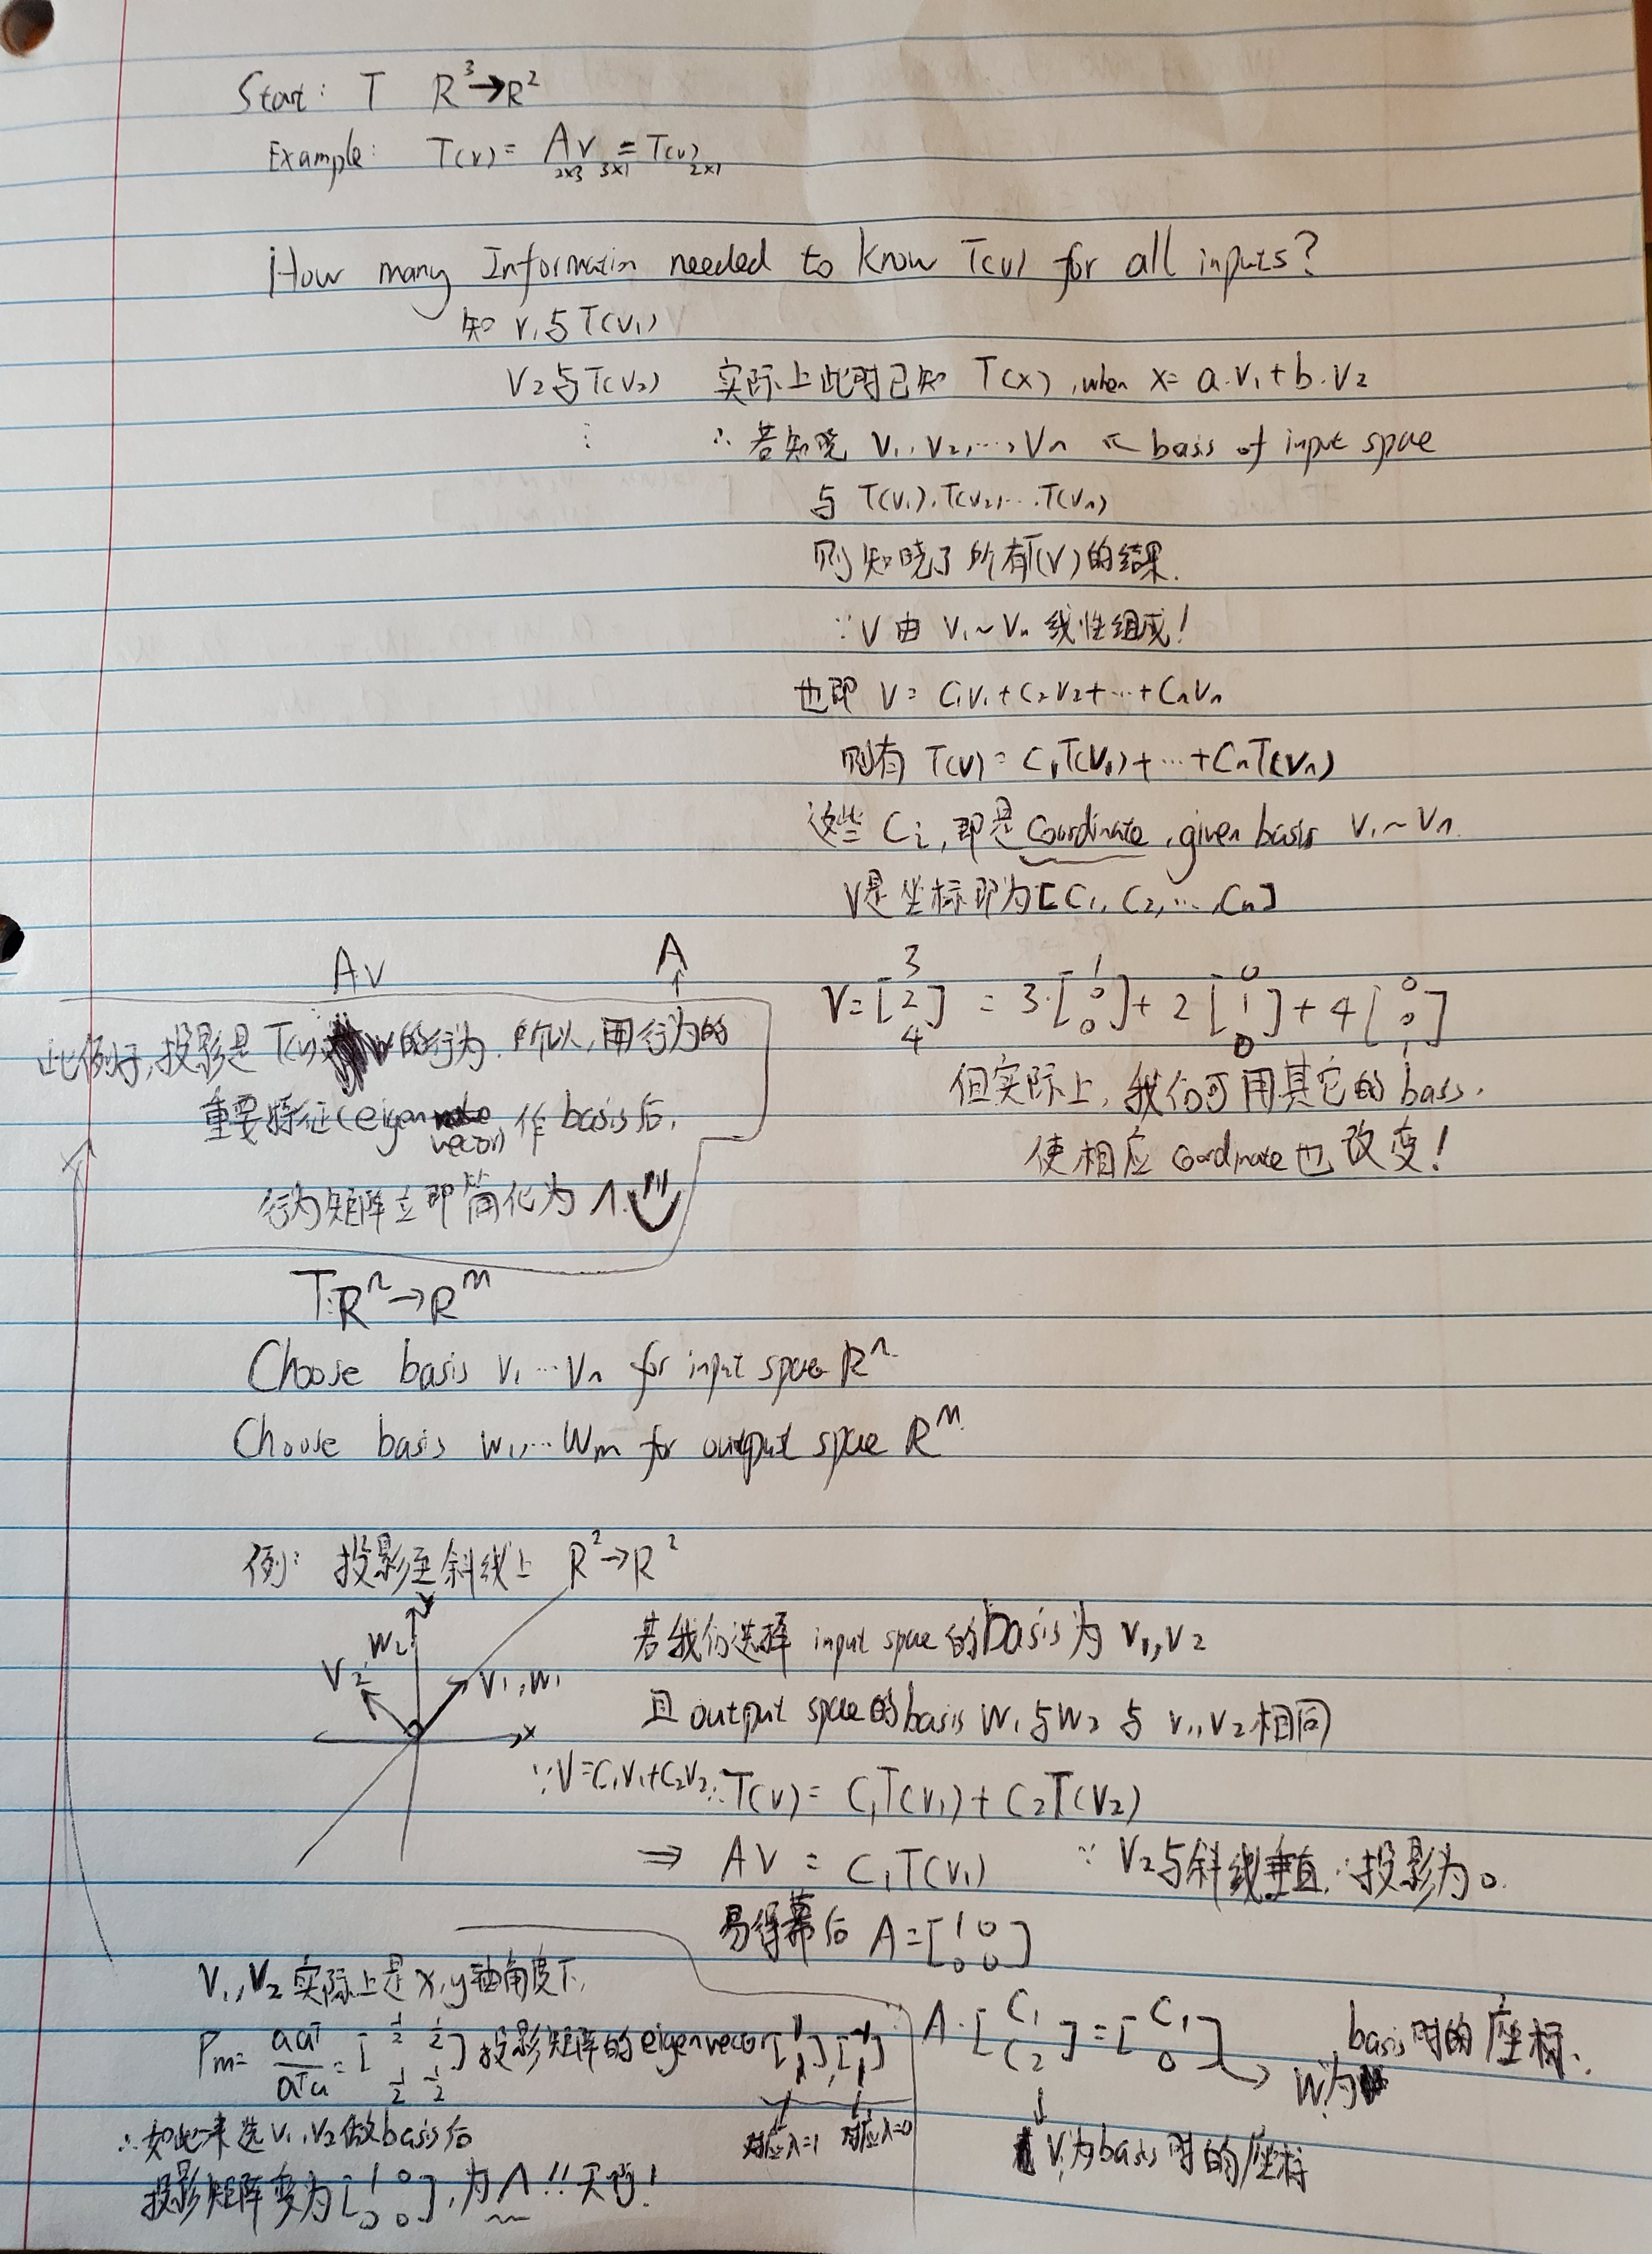 Start: T R³→R²
Example: T(v) = A v = T(v)
2x3 3x1 2x1
How many Information needed to know T(v) for all inputs?
知 v₁与T(v₁)
v₂与T(v₂) 实际上此时已知 T(x), when x = a·v₁+b·v₂
⋮ ∴若知晓 v₁, v₂, ..., vₙ ← basis of input space
与 T(v₁), T(v₂), ... T(vₙ)
则知晓了所有T(v)的结果.
∵V由 v₁~vₙ 线性组成!
也即 V = C₁v₁+C₂v₂+...+Cₙvₙ
则有 T(v) = C₁T(v₁)+...+CₙT(vₙ)
这些 Cᵢ, 即是 Coordinate, given basis v₁~vₙ.
V是坐标即为[C₁, C₂, ..., Cₙ]
V = [3 2 4] = 3·[1 0 0] + 2[0 1 0] + 4[0 0 1]
但实际上, 我们可用其它的 basis,
使相应 Coordinate也改变!
Av A
此例子, 投影是T(v)的行为. 所以, 用行为的
重要特征(eigen vector)作 basis后,
行为矩阵立即简化为 Λ.
T: Rⁿ→Rᵐ
Choose basis v₁...vₙ for input space Rⁿ
Choose basis w₁,...wₘ for output space Rᵐ
例: 投影至斜线上 R²→R²
y
w₂
v₂ v₁, w₁
x
若我们选择 input space的basis为 v₁, v₂
且output space的basis w₁与w₂ 与 v₁, v₂相同
∵V=C₁v₁+C₂v₂ ∴T(v) = C₁T(v₁)+C₂T(v₂)
⇒ AV = C₁T(v₁) ∵V₂与斜线垂直, ∴投影为0.
易得幕后 A = [1 0 0 0]
v₁, v₂实际上是x, y轴角度下,
Pm = aaᵀ/aᵀa = [½ ½ ½ ½] 投影矩阵的eigenvector[1 1], [-1 1]
对应λ=1 对应λ=0
∴如此来选v₁, v₂做basis后
投影矩阵变为[1 0 0 0], 为Λ!! 天哪!
A·[C₁ C₂] = [C₁ 0] → W为 basis时的座标.
↓
V为basis时的座标